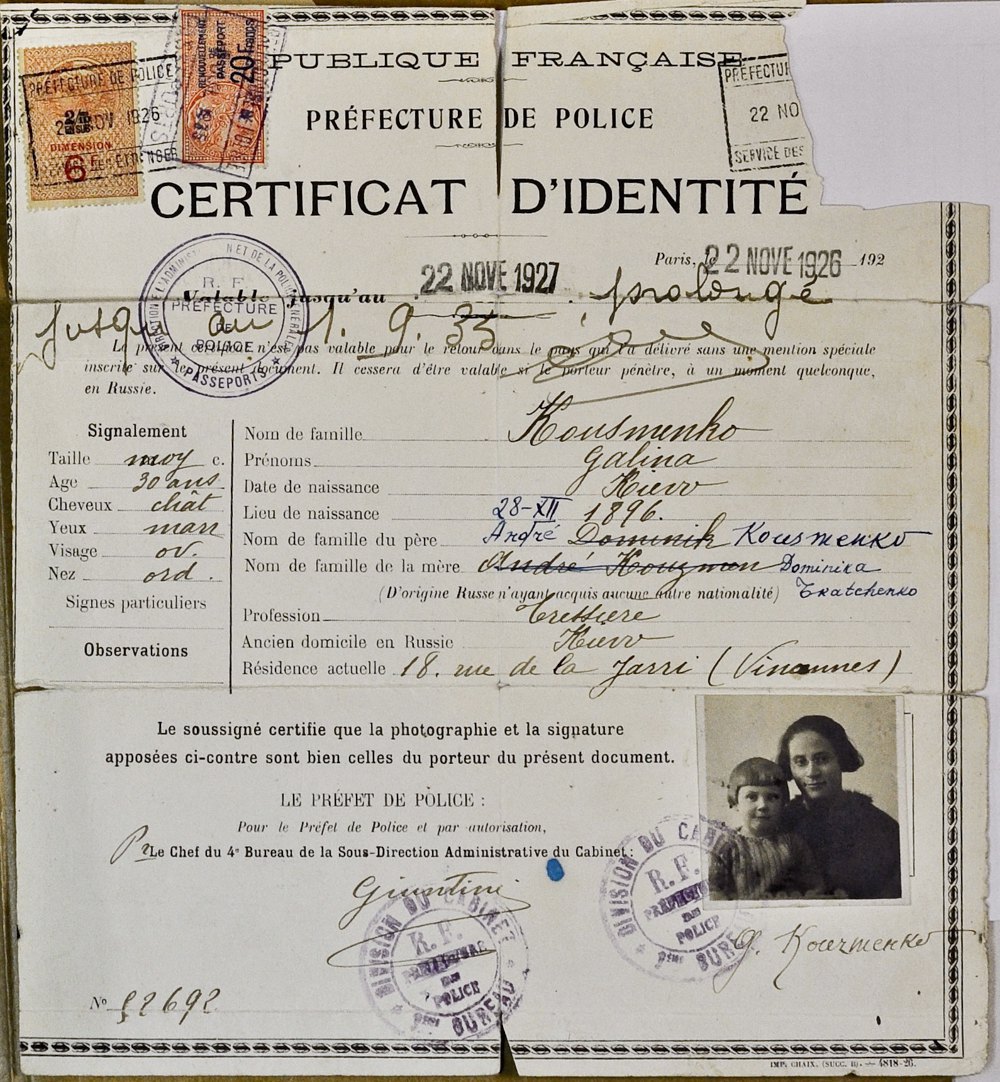 PUBLIQUE FRANÇAISE
PRÉFECTURE DE POLICE
CERTIFICAT D'IDENTITÉ
PRÉFECTURE DE POLICE
NOV 1926
DIMENSION
6
RENOUVELLEMENT
DE
PASSEPORT
20F
PRÉFECTU
22 NO
SERVICE DES
Paris, le 22 NOVE 1926 192
Valable jusqu'au 22 NOVE 1927. prolongé
jusqu'au 1. 9. 33
R. F.
PRÉFECTURE
DE
POLICE
PASSEPORTS
Le présent certificat n'est pas valable pour le retour dans le pays qui l'a délivré sans une mention spéciale
inscrite sur le présent document. Il cessera d'être valable si le porteur pénètre, à un moment quelconque,
en Russie.
Signalement
Taille moy c.
Age 30 ans
Cheveux chât
Yeux marr
Visage ov.
Nez ord.
Signes particuliers
Observations
Nom de famille Kousmenko
Prénoms Galina
Date de naissance Kiew
Lieu de naissance 28-XII 1896.
Nom de famille du père André Dominik Kousmenko
Nom de famille de la mère André Kouzmen Dominika
(D'origine Russe n'ayant acquis aucune autre nationalité) Tkatchenko
Profession
Ancien domicile en Russie Kiew
Résidence actuelle 18. rue de la Jarri (Vincennes)
Le soussigné certifie que la photographie et la signature
apposées ci-contre sont bien celles du porteur du présent document.
LE PRÉFET DE POLICE :
Pour le Préfet de Police et par autorisation,
Pr Le Chef du 4e Bureau de la Sous-Direction Administrative du Cabinet :
Giuntini
DIVISION DU CABINET
R. F.
PRÉFECTURE
DE
POLICE
2ème BUREAU
DIVISION DU CABI
R. F.
PRÉFECTU
DE
POLICE
2ème BUREA
G. Kouzmenko
No 92692
IMP. CHAIX. (SUCC. B). — 4818-26.